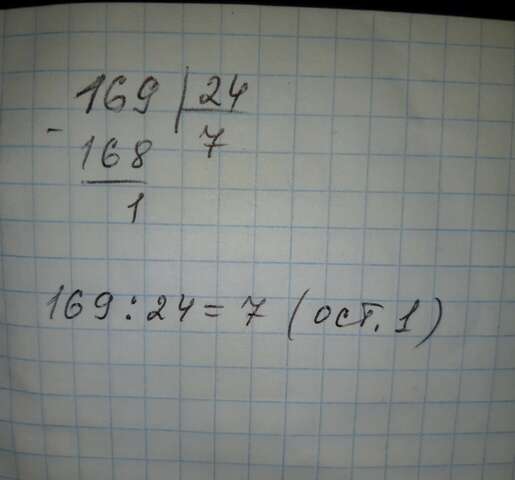 169 | 24
- 168 7
1
169 : 24 = 7 (ост. 1)